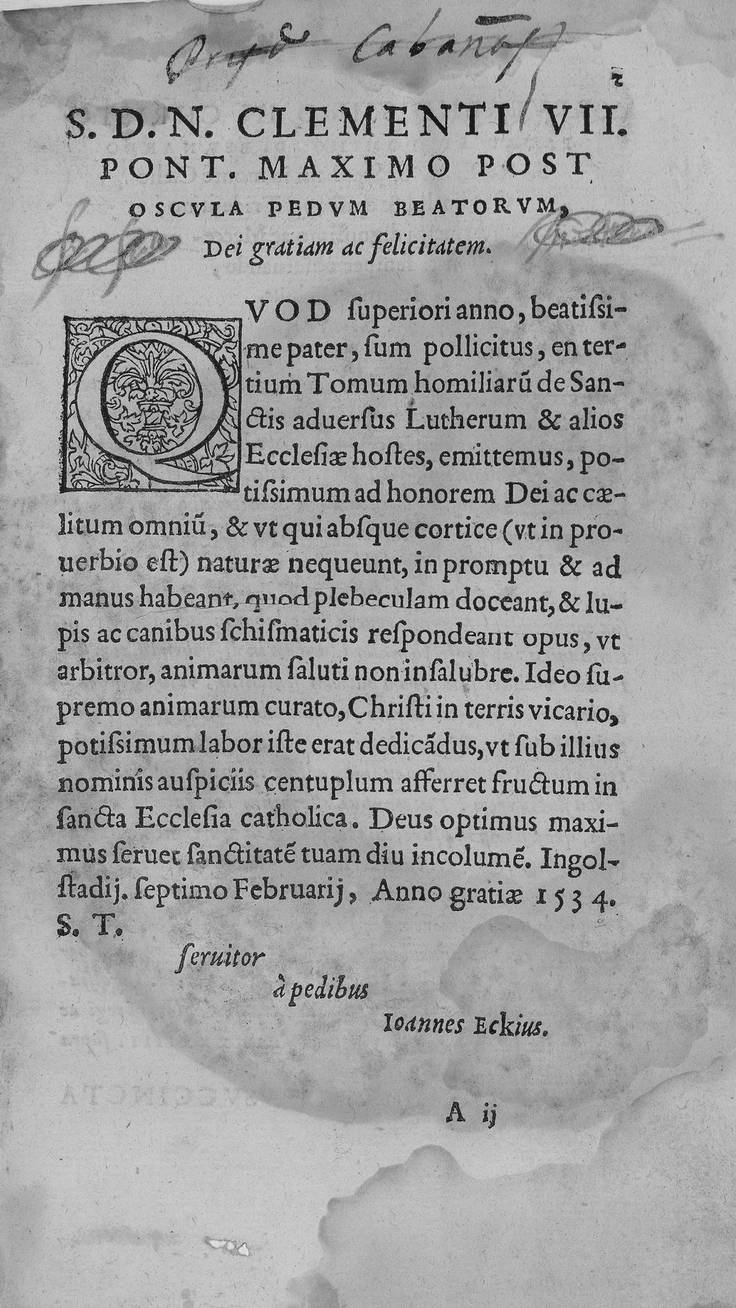 2
S. D. N. CLEMENTI VII.
PONT. MAXIMO POST
OSCVLA PEDVM BEATORVM,
Dei gratiam ac felicitatem.
QVOD ſuperiori anno, beatiſsi-
me pater, ſum pollicitus, en ter-
tium Tomum homiliarũ de San-
ctis aduerſus Lutherum & alios
Eccleſiæ hoſtes, emittemus, po-
tiſsimum ad honorem Dei ac cæ-
litum omniũ, & vt qui abſque cortice (vt in pro-
uerbio eſt) naturæ nequeunt, in promptu & ad
manus habeant, quod plebeculam doceant, & lu-
pis ac canibus ſchiſmaticis reſpondeant opus, vt
arbitror, animarum ſaluti non inſalubre. Ideo ſu-
premo animarum curato, Chriſti in terris vicario,
potiſsimum labor iſte erat dedicãdus, vt ſub illius
nominis auſpiciis centuplum afferret fructum in
ſancta Eccleſia catholica. Deus optimus maxi-
mus ſeruet ſanctitatẽ tuam diu incolumẽ. Ingol-
ſtadij. ſeptimo Februarij, Anno gratiæ 1534.
S. T.
ſeruitor
à pedibus
Ioannes Eckius.
A ij